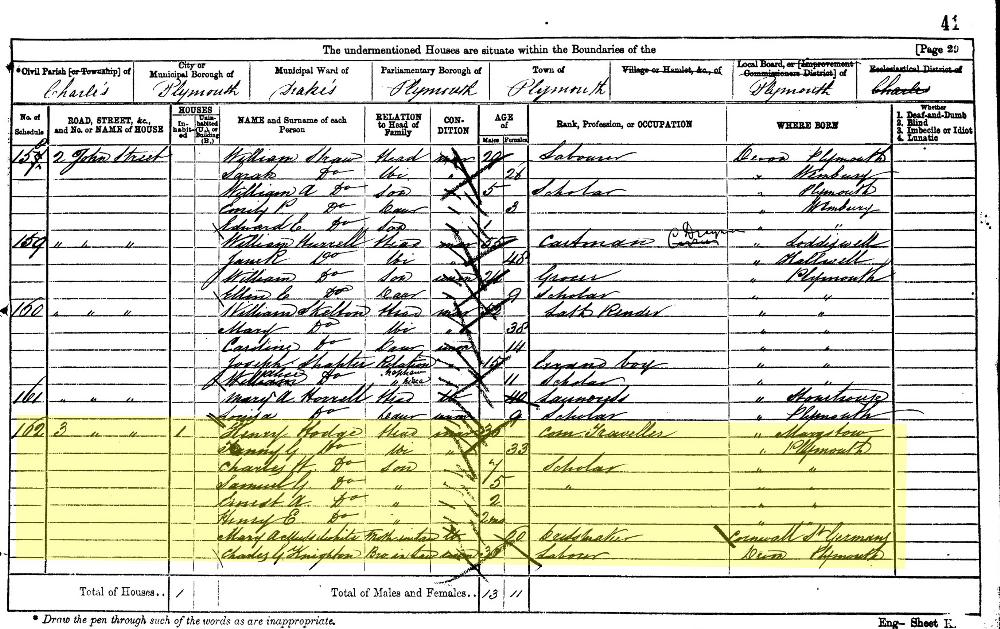 41
The undermentioned Houses are situate within the Boundaries of the [Page 29
*Civil Parish [or Township] of City or Municipal Borough of Municipal Ward of Parliamentary Borough of Town of Village or Hamlet, &c., of Local Board, or [Improvement Commissioners District] of Ecclesiastical District of
Charles Plymouth Drakes Plymouth Plymouth Plymouth Charles
No. of Schedule ROAD, STREET, &c., and No. or NAME of HOUSE HOUSES Inhabited Uninhabited (U.), or Building (B.) NAME and Surname of each Person RELATION to Head of Family CONDITION AGE of Males Females Rank, Profession, or OCCUPATION WHERE BORN Whether 1. Deaf-and-Dumb 2. Blind 3. Imbecile or Idiot 4. Lunatic
2 John Street William Head mar 29 Labourer Devon Plymouth
Sarah Do Wi 26 " Wembury
William A Do Son 5 Scholar " Plymouth
Emily P Do Daur 3 " Wembury
Edward E. Do Son
159 " " " William Hurrell Head mar 55 Cartman " Loddiswell
Jane R Do Wi " 48 "
William Do Son unm Grocer " Plymouth
Ellen E Do Daur 9 Scholar " "
160 " " " William Skelton Head mar Lath Render " "
Mary Do Wi " 38 " "
Caroline Do Daur unm 14 " "
Joseph Shapter Relation nephew 15 Errand boy " "
Do " niece 11 Scholar " "
161 " " " Mary A Horrell Head 40 Laundress " Stonehouse
Louisa Do Daur unm 9 Scholar " Plymouth
162 3 " " 1 Henry Hodge Head mar Com Traveller " Marystow
Fanny G Do Wi " 33 " Plymouth
Charles H Do Son 7 Scholar " "
Samuel G Do " 5 " " "
Ernest A Do " 2 " "
Henry E Do " 2mo "
Mary A Mother in law 60 Dressmaker Cornwall St Germans
Charles G Knighton Bro in law unm Labour Devon Plymouth
Total of Houses.. 1 Total of Males and Females.. 13 11
* Draw the pen through such of the words as are inappropriate.
Eng- Sheet K.